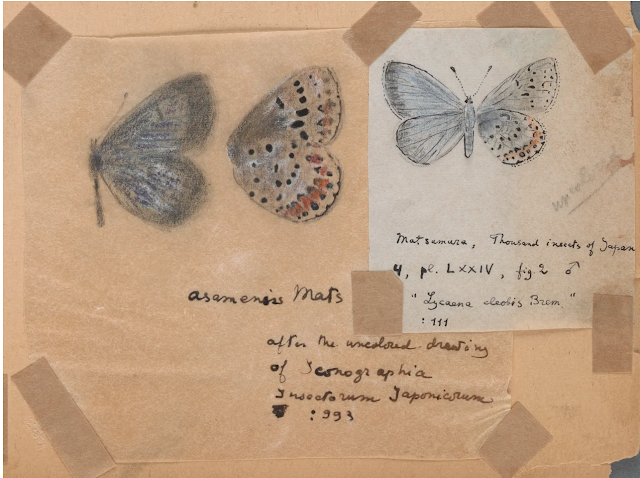 asamensis Mats
after the uncolored drawing
of Iconographia
Insectorum Japonicorum
: 993
Matsumura, Thousand insects of Japan
4, pl. LXXIV, fig 2 ♂
"Lycaena cleobis Brem"
: 111